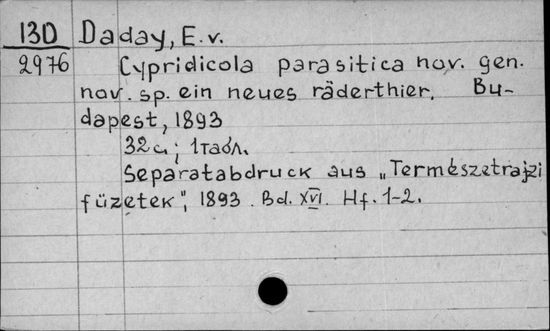 130 Daday, E.v.
2976 Cypridicola parasitica nov. gen.
nov. sp. ein neues räderthier. Bu-
dapest, 1893
32 с.; 1 табл.
Separatabdruck aus „Természetrajzi
füzetek", 1893. Bd. XVI. Hf. 1-2.